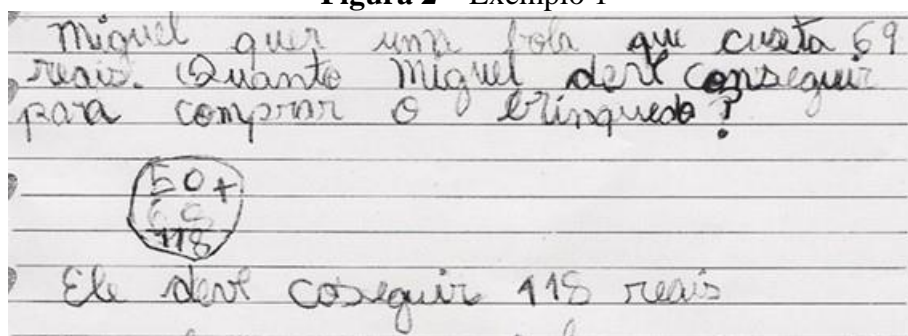 Figura 2 Exemplo 1
Miguel quer uma bola que custa 69
reais. Quanto Miguel deve conseguir
para comprar o brinquedo?
50+
68
118
Ele deve coseguir 118 reais